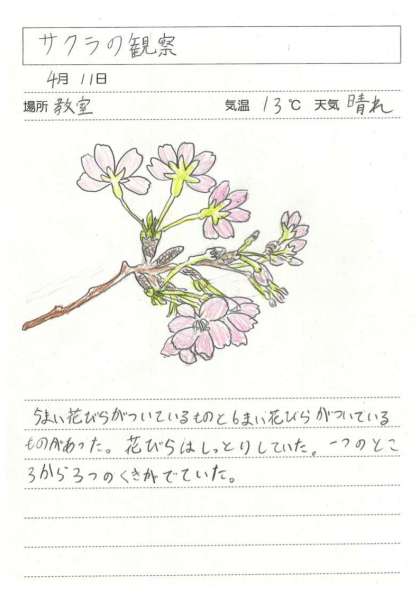 サクラの観察
4月 11日
場所 教室 気温 13℃ 天気 晴れ
5まい花びらがついているものと6まい花びらがついている
ものがあった。花びらはしっとりしていた。一つのとこ
ろから3つのくきがでていた。